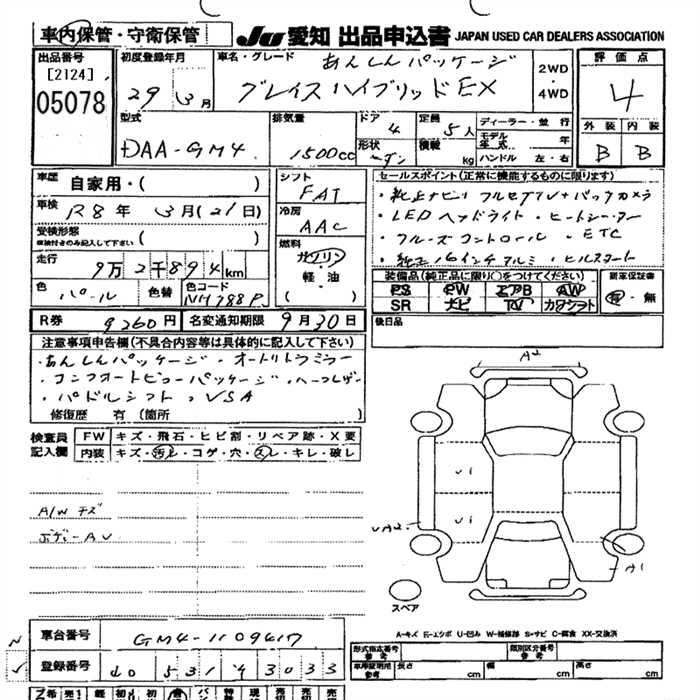 車内保管・守衛保管 JU 愛知 出品申込書 JAPAN USED CAR DEALERS ASSOCIATION
出品番号 初度登録年月 車名・グレード あんしんパッケージ 評価点
[2124] 29年 3月 グレイスハイブリッドEX 2WD・4WD 4
05078
型式 排気量 ドア 定員 ディーラー・並行 外装 内装
DAA-GM4 1500cc 4 5人 モデル年式 年 B B
形状 積載 kg ハンドル 左・右
車歴 自家用・( ) シフト セールスポイント(正常に機能するものに限ります)
FAT ・純正ナビ・フルセグTV+バックカメラ
車検 R8年 3月(21日) 冷房 ・LEDヘッドライト・ヒートシーター
受検形態 ( ) AAC ・クルーズコントロール・ETC
走行 9万2千894km 燃料 ・純正16インチアルミ・ヒルスタート
ガソリン 装備品(純正品に限り○をつけてください) 新車保証書
色 パール 色替 色コード NH788P 軽・油 PS PW エアB AW 有・無
( ) SR ナビ TV カワシート
R券 9260円 名変通知期限 9月30日 後日品
注意事項申告欄(不具合内容等は具体的に記入して下さい)
・あんしんパッケージ・オートリトラミラー
・コンフォートビューパッケージ・ハーフレザー
・パドルシフト・VSA
修復歴 有(箇所 )
A2
検査員 FW キズ・飛石・ヒビ割・リペア跡・X要
記入欄 内装 キズ・汚レ・コゲ・穴・スレ・キレ・破レ
U1
A/Wキズ U1
ボディーAU UA2
A1
スペア
A-キズ E-エクボ U-凹み W-補修跡 S-サビ C-腐食 XX-交換済
車台番号 GM4-1109417 形式指定番号 参考 類別区分番号 参考
登録番号 40 531 4 3033 車庫証明用 参考 長さ cm 幅 cm 高さ cm